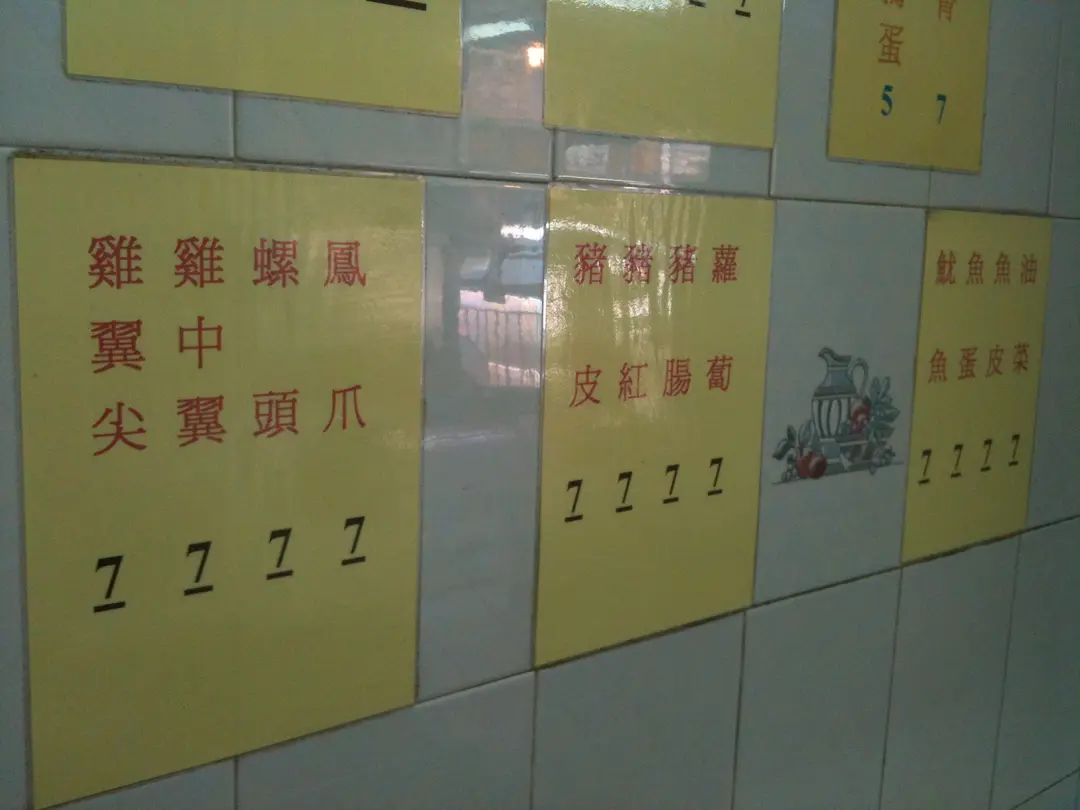 7
蛋
5
7
油菜
7
魚皮
7
魚蛋
7
魷魚
7
蘿蔔
7
豬腸
7
豬紅
7
豬皮
7
鳳爪
7
螺頭
7
雞中翼
7
雞翼尖
7